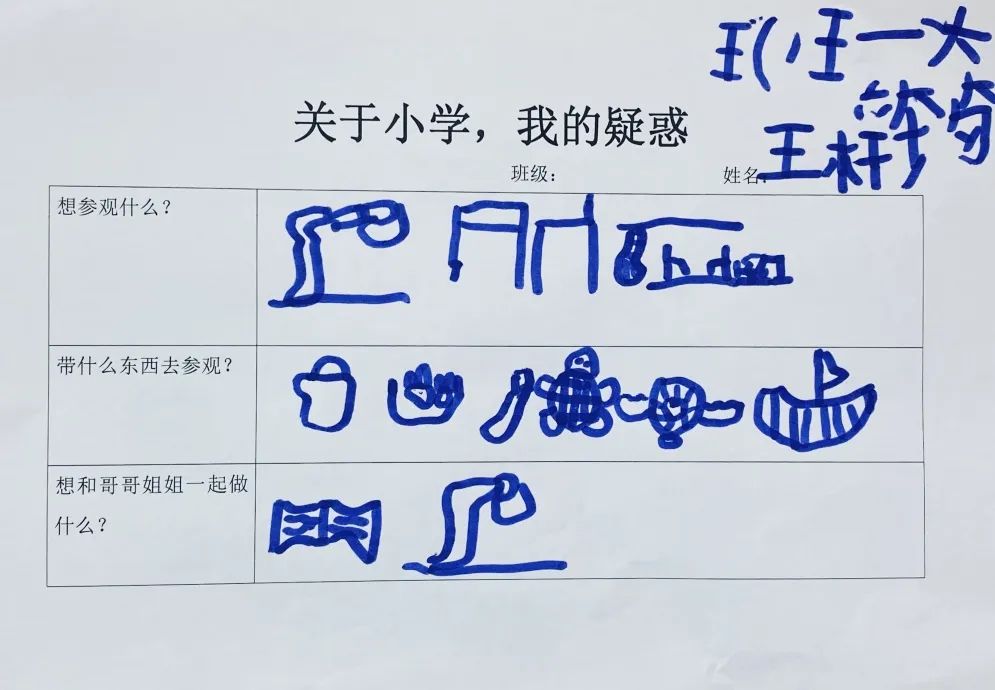 王一大
关于小学，我的疑惑
班级：
姓名：
王
想参观什么？
带什么东西去参观？
想和哥哥姐姐一起做
什么？